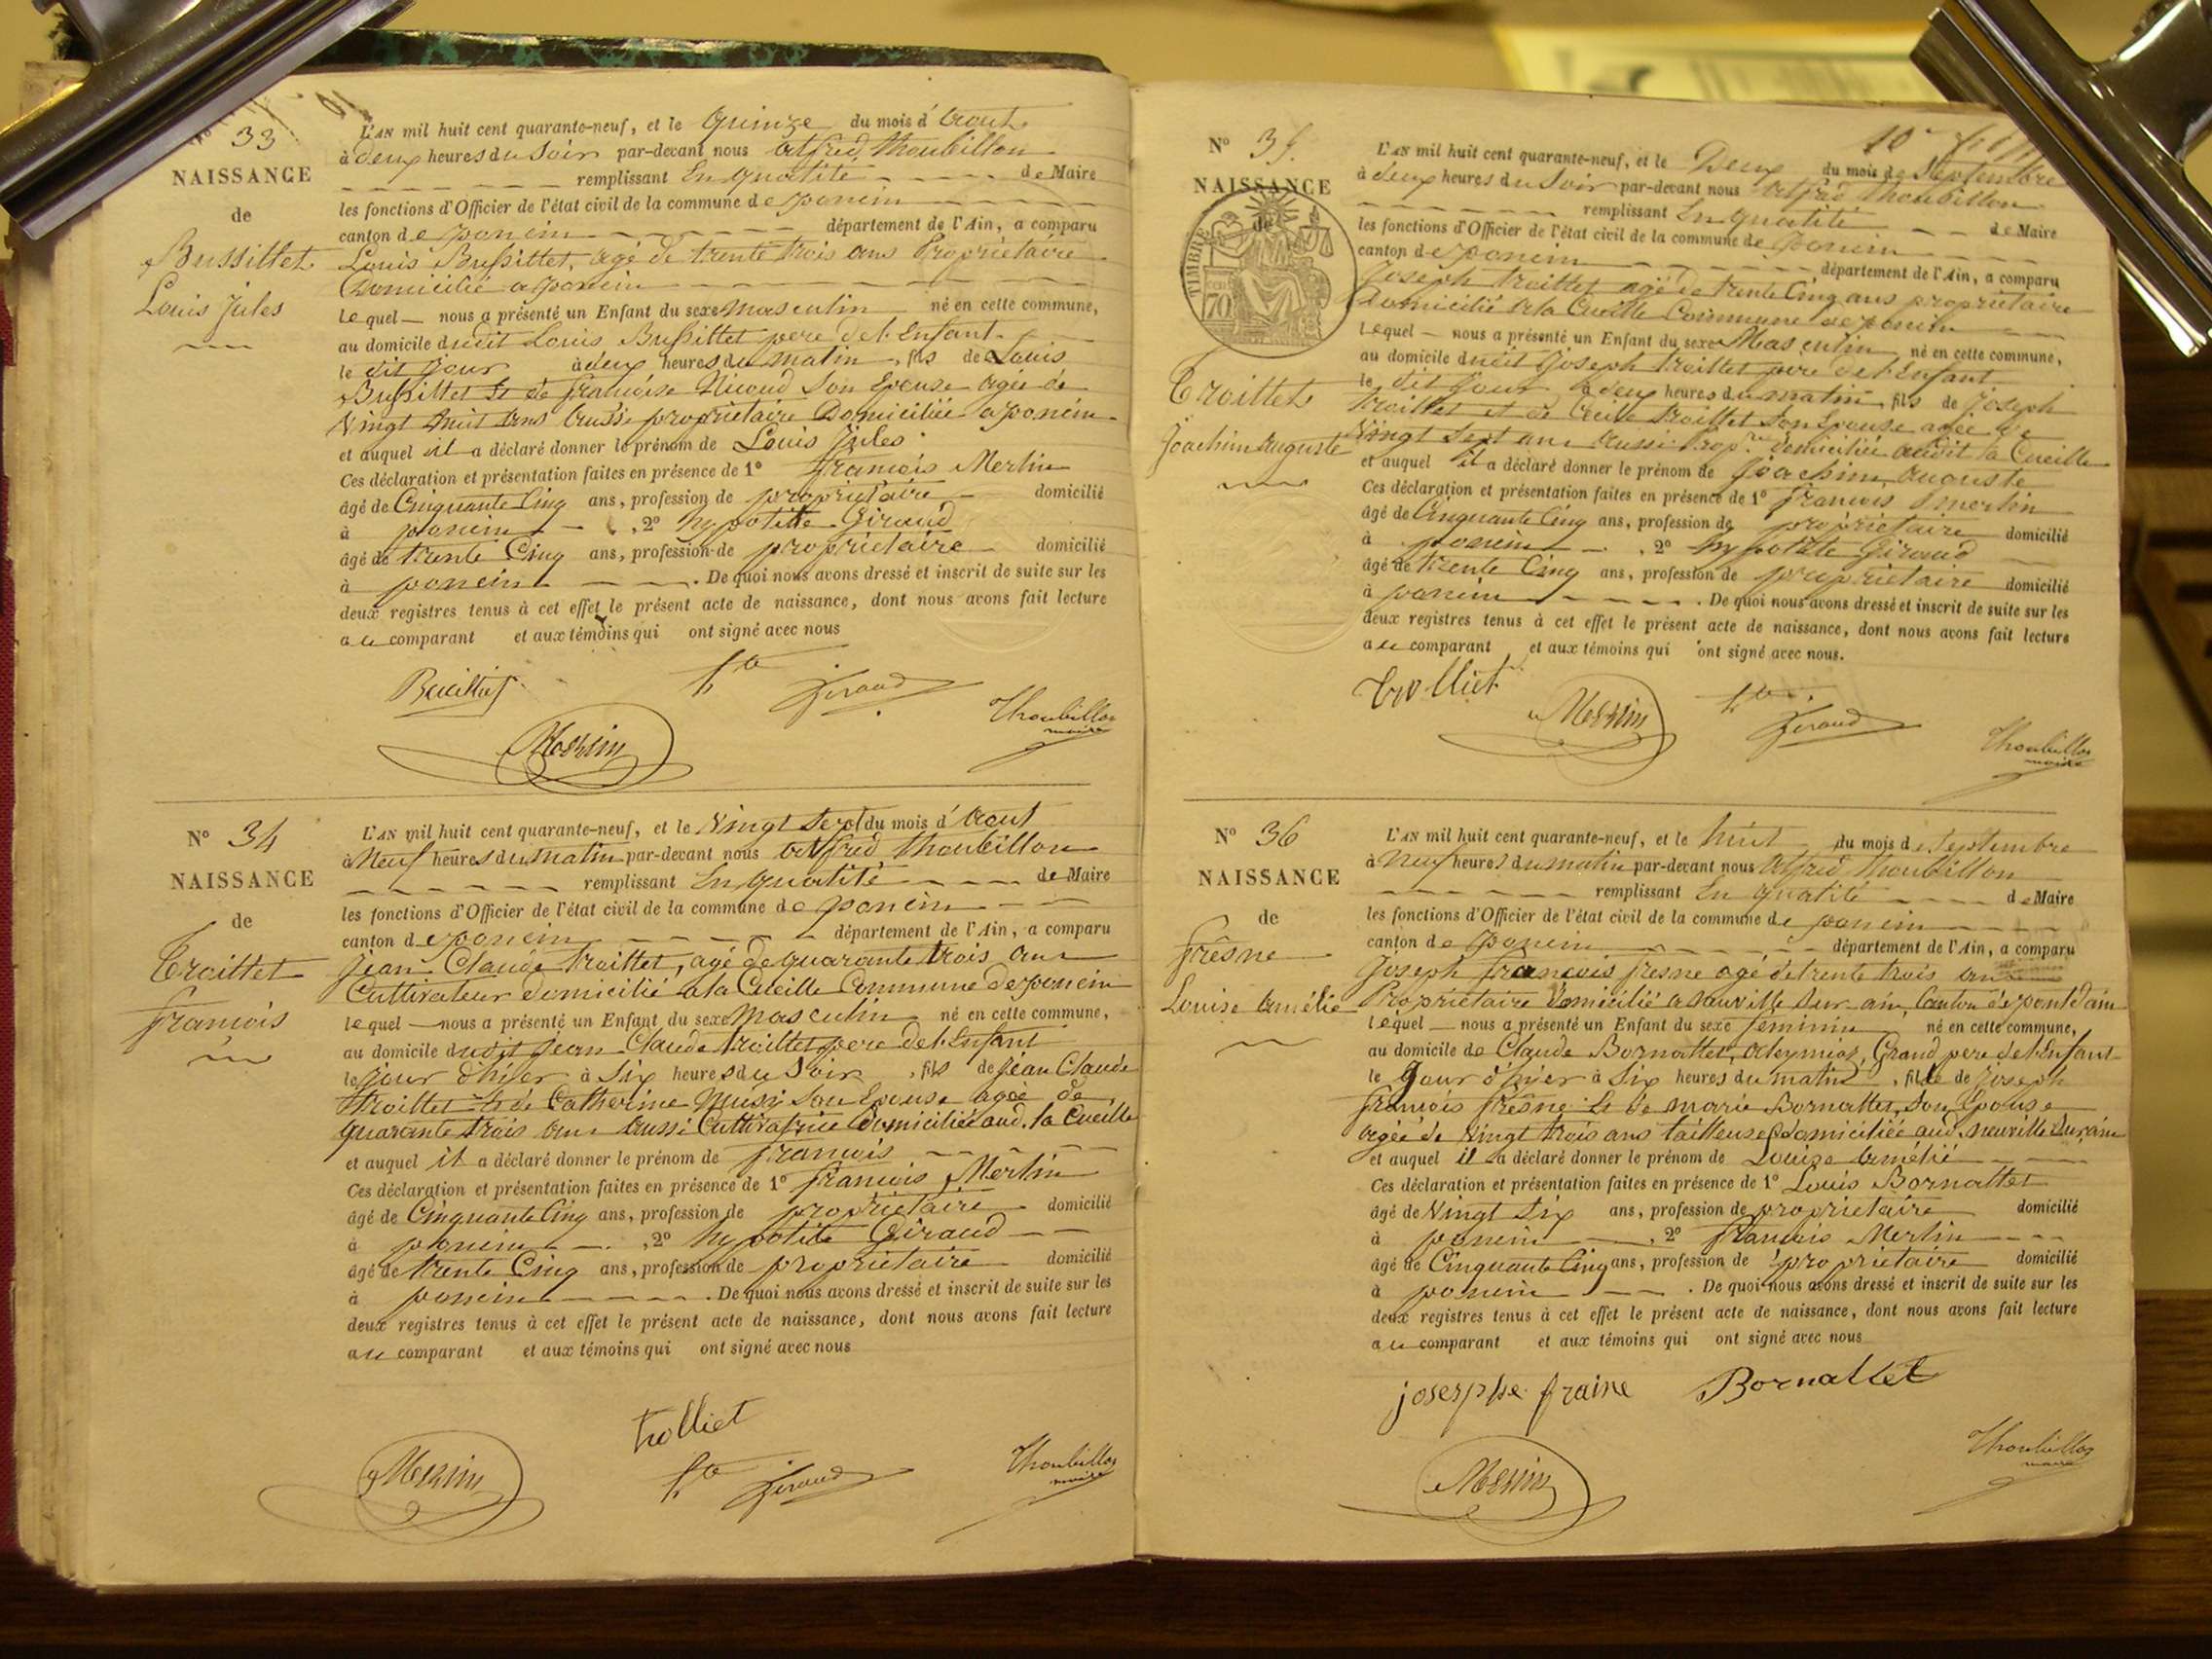 N° 33
NAISSANCE
de
Bussillet
Louis Jules
L'AN mil huit cent quarante-neuf, et le quinze du mois d'aout
à deux heures du Soir par-devant nous Alfred Thoubillon
remplissant En qualité de Maire
les fonctions d'Officier de l'état civil de la commune de poncin
canton de poncin département de l'Ain, a comparu
Louis Bussillet, agé de trente trois ans Propriétaire
Domicilié a poncin
lequel nous a présenté un Enfant du sexe Masculin né en cette commune,
au domicile dudit Louis Bussillet pere de l'Enfant
le dit jour à deux heures du matin, fils de Louis
Bussillet Et de françoise Nicoud Son Epouse agée de
Vingt huit ans aussi propriétaire Domiciliée a poncin
et auquel il a déclaré donner le prénom de Louis Jules
Ces déclaration et présentation faites en présence de 1° françois Merlin
âgé de Cinquante Cinq ans, profession de propriétaire domicilié
à poncin , 2° hypolite Giraud
âgé de trente Cinq ans, profession de propriétaire domicilié
à poncin . De quoi nous avons dressé et inscrit de suite sur les
deux registres tenus à cet effet le présent acte de naissance, dont nous avons fait lecture
au comparant et aux témoins qui ont signé avec nous
hte Giraud
Thoubillon
maire
Merlin
N° 34
NAISSANCE
de
Troillet
françois
L'AN mil huit cent quarante-neuf, et le Vingt Sept du mois d'aout
à Neuf heures du Matin par-devant nous Alfred Thoubillon
remplissant En qualité de Maire
les fonctions d'Officier de l'état civil de la commune de poncin
canton de poncin département de l'Ain, a comparu
Jean Claude troillet, agé de quarante trois ans
Cultivateur domicilié a la Cueille Commune de poncin
lequel nous a présenté un Enfant du sexe masculin né en cette commune,
au domicile dudit Jean Claude troillet pere de l'Enfant
le jour d'hier à Six heures du Soir , fils de Jean Claude
troillet Et de Catherine Son Epouse agée de
quarante trois ans aussi Cultivatrice domiciliée aud. la Cueille
et auquel il a déclaré donner le prénom de françois
Ces déclaration et présentation faites en présence de 1° françois Merlin
âgé de Cinquante Cinq ans, profession de propriétaire domicilié
à poncin , 2° hypolite Giraud
âgé de trente Cinq ans, profession de propriétaire domicilié
à poncin . De quoi nous avons dressé et inscrit de suite sur les
deux registres tenus à cet effet le présent acte de naissance, dont nous avons fait lecture
au comparant et aux témoins qui ont signé avec nous
trolliet
Merlin
hte Giraud
Thoubillon
maire
N° 35.
NAISSANCE
de
TIMBRE
70
Troillet
Joachim Auguste
L'AN mil huit cent quarante-neuf, et le Deux du mois de Septembre
à deux heures du Soir par-devant nous Alfred Thoubillon
remplissant En qualité de Maire
les fonctions d'Officier de l'état civil de la commune de poncin
canton de poncin département de l'Ain, a comparu
Joseph troillet agé de trente Cinq ans propriétaire
Domicilié a la Cueille Commune de poncin
lequel nous a présenté un Enfant du sexe Masculin né en cette commune,
au domicile dudit Joseph troillet pere de l'Enfant
le dit jour à deux heures du matin , fils de Joseph
troillet et de troillet Son Epouse agée de
Vingt Sept ans aussi prop.re domiciliée audit la Cueille
et auquel il a déclaré donner le prénom de Joachim auguste
Ces déclaration et présentation faites en présence de 1° françois merlin
âgé de Cinquante Cinq ans, profession de propriétaire domicilié
à poncin , 2° hypolite Giraud
âgé de trente Cinq ans, profession de propriétaire domicilié
à poncin . De quoi nous avons dressé et inscrit de suite sur les
deux registres tenus à cet effet le présent acte de naissance, dont nous avons fait lecture
au comparant et aux témoins qui ont signé avec nous.
trolliet
Merlin
hte Giraud
Thoubillon
maire
N° 36
NAISSANCE
de
frêsne
Louise Amélie
L'AN mil huit cent quarante-neuf, et le huit du mois de Septembre
à neuf heures du matin par-devant nous Alfred Thoubillon
remplissant En qualité de Maire
les fonctions d'Officier de l'état civil de la commune de poncin
canton de poncin département de l'Ain, a comparu
Joseph françois fresne agé de trente trois ans
Propriétaire domicilié a neuville Sur ain, Canton de pont d'ain
lequel nous a présenté un Enfant du sexe féminin né en cette commune,
au domicile de Claude Bornattet, Grand pere de l'Enfant
le jour d'hier à Six heures du matin , fille de Joseph
françois frêsne Et de marie Bornattet, Son Epouse
agée de Vingt trois ans tailleuse domiciliée aud. neuville Sur ain
et auquel il a déclaré donner le prénom de Louise amélie
Ces déclaration et présentation faites en présence de 1° Louis Bornattet
âgé de Vingt Six ans, profession de propriétaire domicilié
à poncin , 2° françois Merlin
âgé de Cinquante Cinq ans, profession de propriétaire domicilié
à poncin . De quoi nous avons dressé et inscrit de suite sur les
deux registres tenus à cet effet le présent acte de naissance, dont nous avons fait lecture
au comparant et aux témoins qui ont signé avec nous
joserphe fraine Bornattet
Thoubillon
maire
Merlin